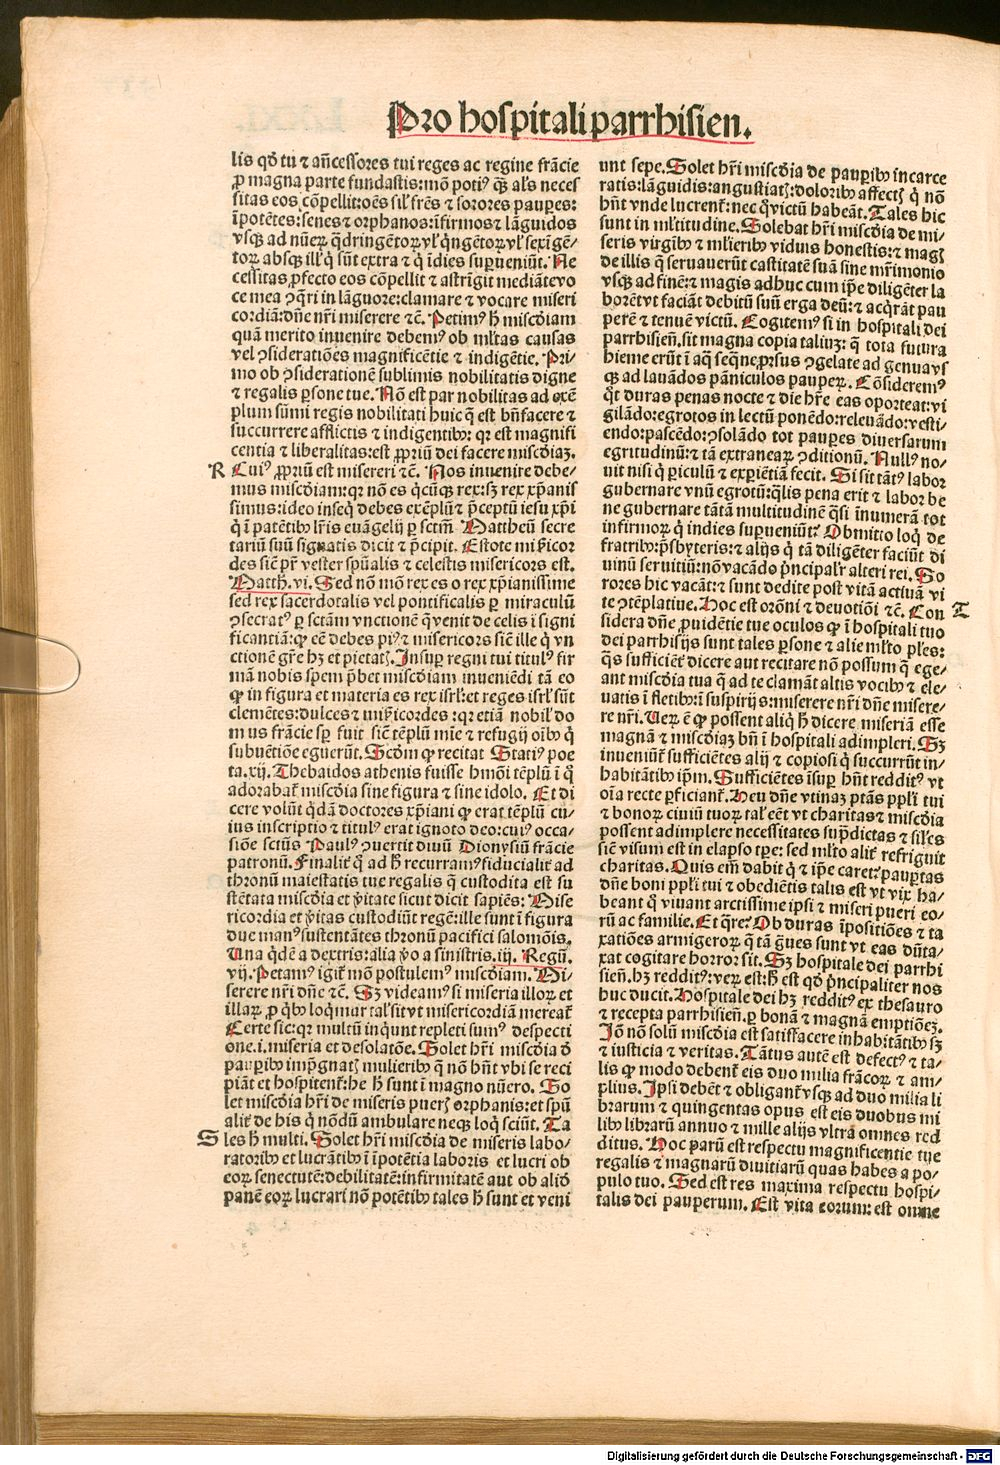 Pro hospitali parrhisien.
lis qđ tu ⁊ añcessores tui reges ac regine frãcie
ꝓ magna parte fundastis: mõ potiꝰ qꝫ al's neces
sitas eos cõpellit: oẽs sil' frẽs ⁊ sorores pauꝑes:
ĩpotẽtes: senes ⁊ orphanos: ĩfirmos ⁊ lãguidos
vsqꝫ ad nũeꝝ q̃dringẽtoꝝ vl' q̃ngẽtoꝝ vl' sexĩgẽ/
toꝝ absqꝫ ill' q̃ sũt extra ⁊ q̃ ĩdies suꝑueniũt. Ne
cessitas ꝓfecto eos cõpellit ⁊ astrĩgit mediãte vo
ce mea ↄq̃ri in lãguore: clamare ⁊ vocare miseri
cordiã: dñe nr̃i miserere ⁊c̃. Petimꝰ h̃ miscđiam
quã merito inuenire debemꝰ ob ml'tas causas
vel ↄsideratiões magnificẽtie ⁊ indigẽtie. Pri/
mo ob ↄsiderationẽ sublimis nobilitatis digne
⁊ regalis ꝑsone tue. Nõ est par nobilitas ad exẽ
plum sũmi regis nobilitati huic q̃ est bñfacere ⁊
succurrere afflictis ⁊ indigentibꝰ: qꝛ est magnifi
centia ⁊ liberalitas: est ꝓpriũ dei facere miscđiaꝫ.
R Cuiꝰ ꝓpriũ est misereri ⁊c̃. Nos inuenire debe/
mus miscđiam: qꝛ nõ es q̃cũqꝫ rex: sꝫ rex xp̃anis
simus: ideo inseq̃ debes exẽplũ ⁊ p̃ceptũ iesu xp̃i
q̃ ĩ patẽtibꝰ lr̃is euãgelij ꝑ sctm̃ Mattheũ secre
tariũ suũ signatis dicit ⁊ p̃cipit. Estote mĩsericor
des sic̃ pr̃ vester spũalis ⁊ celestis misericors est.
Matth. vi. Sed nõ mõ rex es o rex xp̃ianissime
sed rex sacerdotalis vel pontificalis ꝑ miraculũ
ↄsecratꝰ ꝑ sctãm vnctionẽ q̃ venit de celis ĩ signi
ficantiã: ꝙ eẽ debes piꝰ ⁊ misericors sic̃ ille q̃ vn
ctionẽ gr̃e hꝫ et pietatꝭ. Insuꝑ regni tui titulꝰ fir
mã nobis spem p̃bet miscđiam inueniẽdi tã eo
ꝙ in figura et materia es rex isrl': et reges isrl' sũt
clemẽtes: dulces ⁊ mĩsericordes: qꝛ etiã nobil' do
mus frãcie sꝑ fuit sic̃ tẽplũ mĩe ⁊ refugij oĩbꝰ q̃
subuẽtiõe eguerũt. Scđm ꝙ recitat Statiꝰ poe
ta. xij. Thebaidos athenis fuisse hmõi tẽplũ ĩ q̃
adorabat̃ miscđia sine figura ⁊ sine idolo. Et di
cere volũt q̃dã doctores xp̃iani ꝙ erat tẽplũ cu/
ius inscriptio ⁊ titulꝰ erat ignoto deo: cuiꝰ occa/
siõe sctũs Paulꝰ ↄuertit diuũ Dionysiũ frãcie
patronũ. Finalit̃ q̃ ad h̃ recurramꝰ fiducialit̃ ad
thronũ maiestatis tue regalis q̃ custodita est su
stẽtata miscđia et ṽitate sicut dicit sapiẽs: Mise
ricordia et ṽitas custodiũt regẽ: ille sunt ĩ figura
due manꝰ sustentãtes thronũ pacifici salomõis.
Una q̃dẽ a dextris: alia ṽo a sinistris. iij. Regũ.
vij. Petamꝰ igit̃ mõ postulemꝰ miscđiam. Mi/
serere nr̃i dñe ⁊c̃. Sꝫ videamꝰ si miseria illoꝝ et
illaꝝ ꝓ q̃bꝰ loq̃mur tal' sit vt misericordiã mereat̃
Certe sic: qꝛ multũ inq̃unt repleti sumꝰ despecti
one. i. miseria et desolatõe. Solet hr̃i miscđia đ
pauꝑibꝰ imp̃gnatꝭ mulieribꝰ q̃ nõ hñt vbi se reci
piãt et hospitent̃: he h̃ sunt ĩ magno nũero. So
let miscđia hr̃i de miseris puerꝭ orphanis: et spũ
alit̃ de his q̃ nõdũ ambulare neqꝫ loq̃ sciũt. Ta
S les h̃ multi. Solet hr̃i miscđia de miseris labo/
ratoribꝰ et lucrãtibꝰ ĩ ĩpotẽtia laboris et lucri ob
eoꝝ senectutẽ: debilitatẽ: infirmitatẽ aut ob aliđ
panẽ eoꝝ lucrari nõ potẽtibꝰ tales h̃ sunt et veni
unt sepe. Solet hr̃i miscđia de pauꝑibꝰ incarce
ratis: lãguidis: angustiatꝭ: doloribꝰ affectꝭ q̃ nõ
hñt vnde lucrent̃: nec q̃ victũ habeãt. Tales hic
sunt in ml'titudine. Solebat hr̃i miscđia de mi/
seris virgĩbꝰ ⁊ ml'ieribꝰ viduis honestis: ⁊ magꝭ
de illis q̃ seruauerũt castitatẽ suã sine mr̃imonio
vsqꝫ ad finẽ: ⁊ magis adhuc cum ip̃e diligẽter la
borẽt vt faciãt debitũ suũ erga deũ: ⁊ acq̃rãt pau
perẽ ⁊ tenuẽ victũ. Cogitemꝰ si in hospitali dei
parrhisieñ. sit magna copia taliuꝫ: q̃ tota futura
hieme erũt ĩ aq̃ seq̃ne ꝓrsus ↄgelate ad genua vs
qꝫ ad lauãdos pãniculos pauꝑeꝝ. Cõsideremꝰ
q̃t duras penas nocte ⁊ die hr̃e eas oporteat: vi
gilãdo: egrotos in lectũ ponẽdo: releuãdo: vesti/
endo: pascẽdo: ↄsolãdo tot pauꝑes diuersarum
egritudinũ: ⁊ tã extraneaꝝ ↄditionũ. Nullꝰ no/
uit nisi q̃ piculũ ⁊ exꝑiẽtiã fecit. Si sit tãtꝰ labor
gubernare vnũ egrotũ: q̃lis pena erit ⁊ labor be
ne gubernare tãtã multitudinẽ q̃si ĩnumerã tot
infirmoꝝ q̃ indies suꝑueniũt? Obmitto loq̃ de
fratribꝰ: p̃sbyteris: ⁊ alijs q̃ tã diligẽter faciũt di
uinũ seruitiũ: nõ vacãdo p̃ncipal'r alteri rei. So
rores hic vacãt: ⁊ sunt dedite post vitã actiuã vi
te ↄtẽplatiue. Hoc est orõni ⁊ deuotiõi ⁊c̃. Con T
sidera dñe ꝓuidẽtie tue oculos ꝙ ĩ hospitali tuo
dei parrhisijs sunt tales ꝑsone ⁊ alie ml'to ples:
q̃s sufficiẽt̃ dicere aut recitare nõ possum q̃ ege/
ant miscđia tua q̃ ad te clamãt altis vocibꝰ ⁊ ele/
uatis ĩ fletibꝰ: ĩ suspirijs: miserere nr̃i dñe misere/
re nr̃i. Ueꝝ ẽ ꝙ possent aliq̃ h̃ dicere miseriã esse
magnã ⁊ miscđiaꝫ bñ ĩ hospitali adimpleri. Sꝫ
inueniũt̃ sufficiẽtes alij ⁊ copiosi q̃ succurrũt in/
habitãtibꝰ ip̃m. Sufficiẽtes ĩsuꝑ hñt redditꝰ vt
oĩa recte ꝑficiant̃. Heu dñe vtinaꝫ ptãs ppl'i tui
⁊ bonoꝝ ciuiũ tuoꝝ tal' eẽt vt charitas ⁊ miscđia
possent adimplere necessitates sup̃dictas ⁊ sil'es
sic̃ visum est in elapso tꝑe: sed ml'to alit̃ refriguit
charitas. Quis em̃ dabit q̃ ⁊ ip̃e caret? pauꝑtas
dñe boni ppl'i tui ⁊ obediẽtis talis est vt vix ha/
beant q̃ viuant arctissime ipsi ⁊ miseri pueri eo/
rũ ac familie. Et q̃re? Ob duras ĩpositiões ⁊ ta
xatiões armigeroꝝ q̃ tã g̃ues sunt vt eas dũta/
xat cogitare horror sit. Sꝫ hospitale dei parrhi
sieñ. hꝫ redditꝰ: veꝝ est: h̃ est qđ p̃ncipaliter nos
huc ducit. Hospitale dei hꝫ redditꝰ ex thesauro
⁊ recepta parrhisieñ. ꝑ bonã ⁊ magnã emptiõeꝫ.
Iõ nõ solũ miscđia est satisfacere inhabitãtibꝰ sꝫ
⁊ iusticia ⁊ veritas. Tãtus autẽ est defectꝰ ⁊ ta/
lis ꝙ modo debent̃ eis duo milia frãcoꝝ ⁊ am/
plius. Ipsi debẽt ⁊ obligant̃ vsqꝫ ad duo milia li
brarum ⁊ quingentas opus est eis duobus mi
libꝰ librarũ annuo ⁊ mille alijs vltra omnes red
ditus. Hoc parũ est respectu magnificentie tue
regalis ⁊ magnarũ diuitiarũ quas habes a po/
pulo tuo. Sed est res maxima respectu hospi/
talis dei pauperum. Est vita eorum: est omne
Digitalisierung gefördert durch die Deutsche Forschungsgemeinschaft - DFG